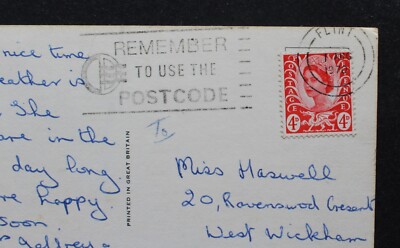 nice time
REMEMBER
TO USE THE
POSTCODE
FLINT
POSTAGE
REVENUE
4D
4D
eather is
She
are in the
day long
re happy.
soon.
Godfrey
To
PRINTED IN GREAT BRITAIN
Miss Haswell
20, Ravenswood Cresent
West Wickham